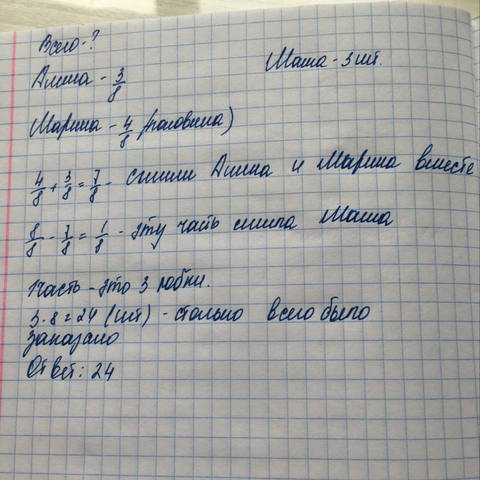 Всего-?
Алина - 3/8
Маша - 3 шт.
Марина - 4/8 (половина)
4/8 + 3/8 = 7/8 - сшили Алина и Марина вместе
8/8 - 7/8 = 1/8 - эту часть сшила Маша
1 часть - это 3 юбки.
3·8=24 (шт) - столько всего было
заказано
Ответ: 24